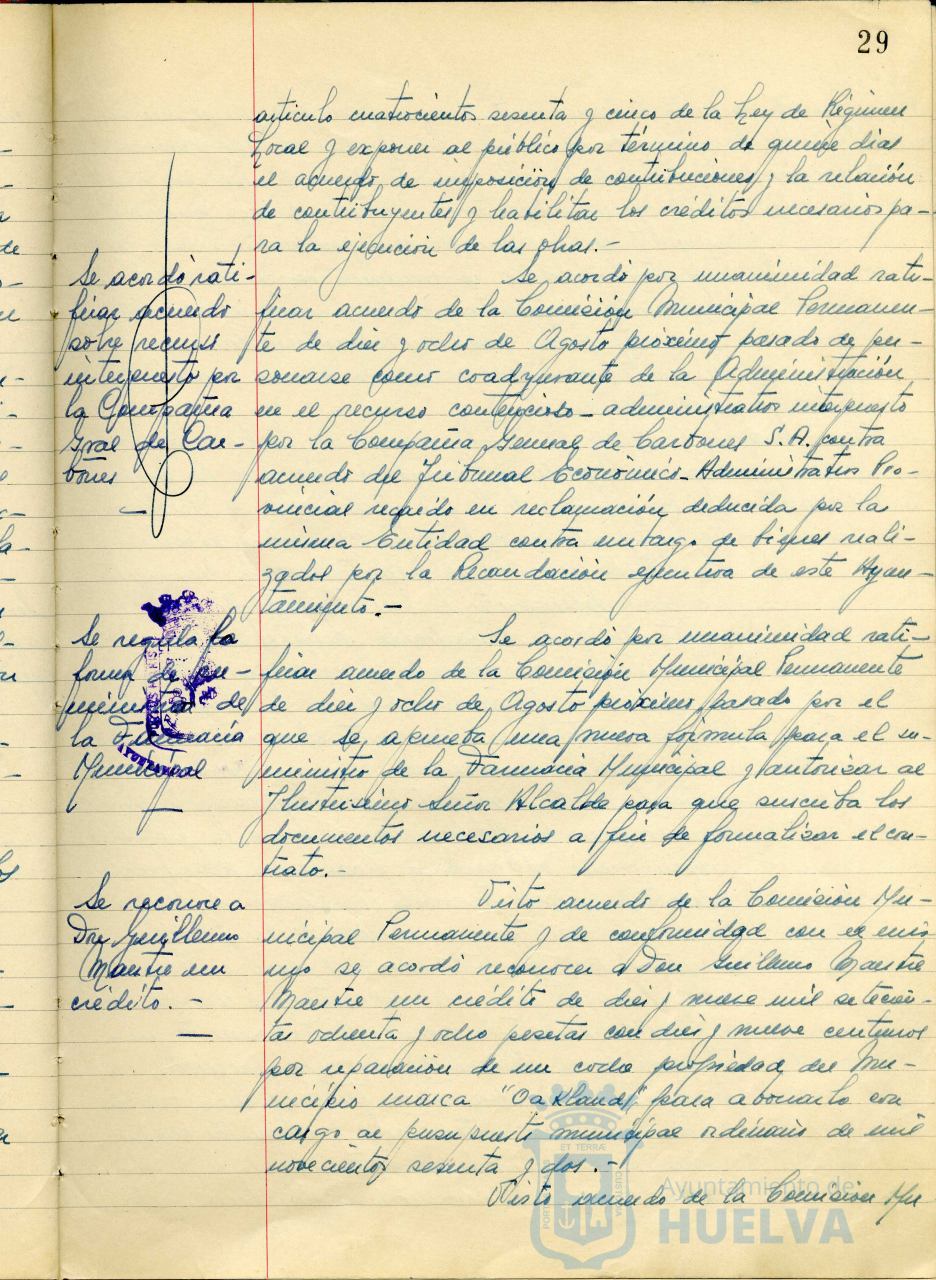 29
artículo cuatrocientos sesenta y cinco de la Ley de Régimen
Local y exponer al público por término de quince dias
el acuerdo de imposición de contribuciones y la relación
de contribuyentes y habilitar los créditos necesarios pa-
ra la ejecución de las obras.-
Se acordó rati-
ficar acuerdo
sobre recurso
interpuesto por
la Compañia
Gral de Car-
bones
Se acordó por unanimidad rati-
ficar acuerdo de la Comisión Municipal Permanen-
te de diez y ocho de Agosto próximo pasado de per-
sonarse como coadyuvante de la Administración
en el recurso contencioso-administrativo interpuesto
por la Compañia General de Carbones S.A. contra
acuerdo del Tribunal Económico-Administrativo Pro-
vincial recaido en reclamación deducida por la
misma Entidad contra embargo de bienes reali-
zados por la Recaudación ejecutiva de este Ayun-
tamiento.-
Se regula la
forma de su-
ministrar de
la Farmacia
Municipal
Se acordó por unanimidad rati-
ficar acuerdo de la Comisión Municipal Permanente
de diez y ocho de Agosto próximo pasado por el
que se aprueba una nueva fórmula para el su-
ministro de la Farmacia Municipal y autorizar al
Ilustrisimo Señor Alcalde para que suscriba los
documentos necesarios a fin de formalizar el con-
trato.-
Se reconoce a
Don Guillermo
Maestre un
crédito.-
Visto acuerdo de la Comisión Mu-
nicipal Permanente y de conformidad con el mis
mo se acordó reconocer a Don Guillermo Maestre
Maestre un crédito de diez y nueve mil setecien-
tas ochenta y ocho pesetas con diez y nueve centimos
por reparación de un coche propiedad del Mu-
nicípio marca "Oaklands" para abonarlo con
cargo al presupuesto municipal ordinario de mil
novecientos sesenta y dos.-
Visto acuerdo de la Comisión Mu
Ayuntamiento de
HUELVA